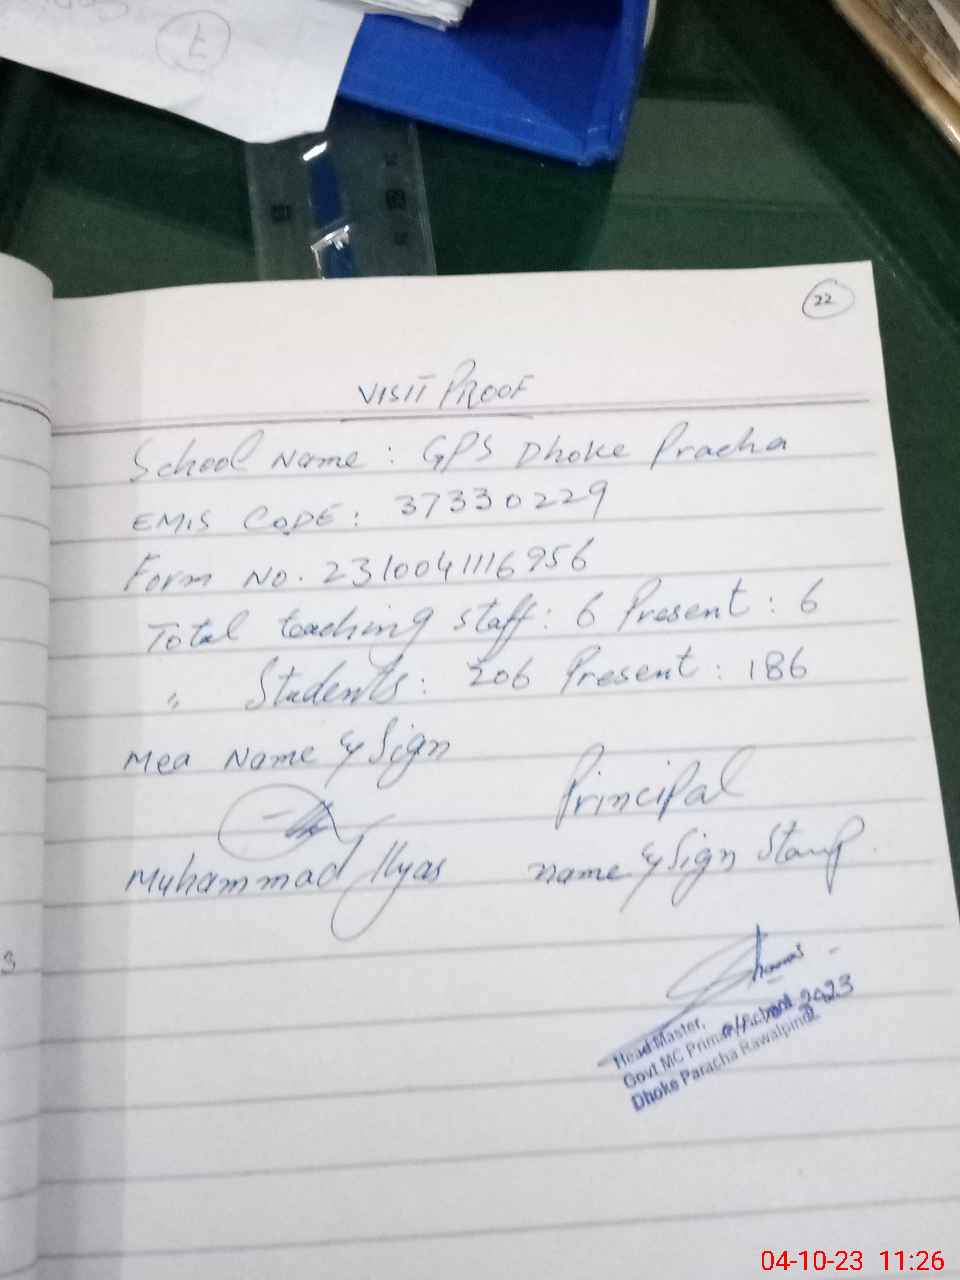 7
22
VISIT PROOF
School Name : GPS Dhoke Pracha
EMIS CODE : 37330229
Form No. 2310041116956
Total teaching staff : 6 Present : 6
" Students : 206 Present : 186
Mea Name & Sign
Principal
Muhammad Ilyas
name & Sign Stamp.
Head Master,
Govt MC Primary
2023
Dhoke Paracha Rawalpindi
3
04-10-23 11:26